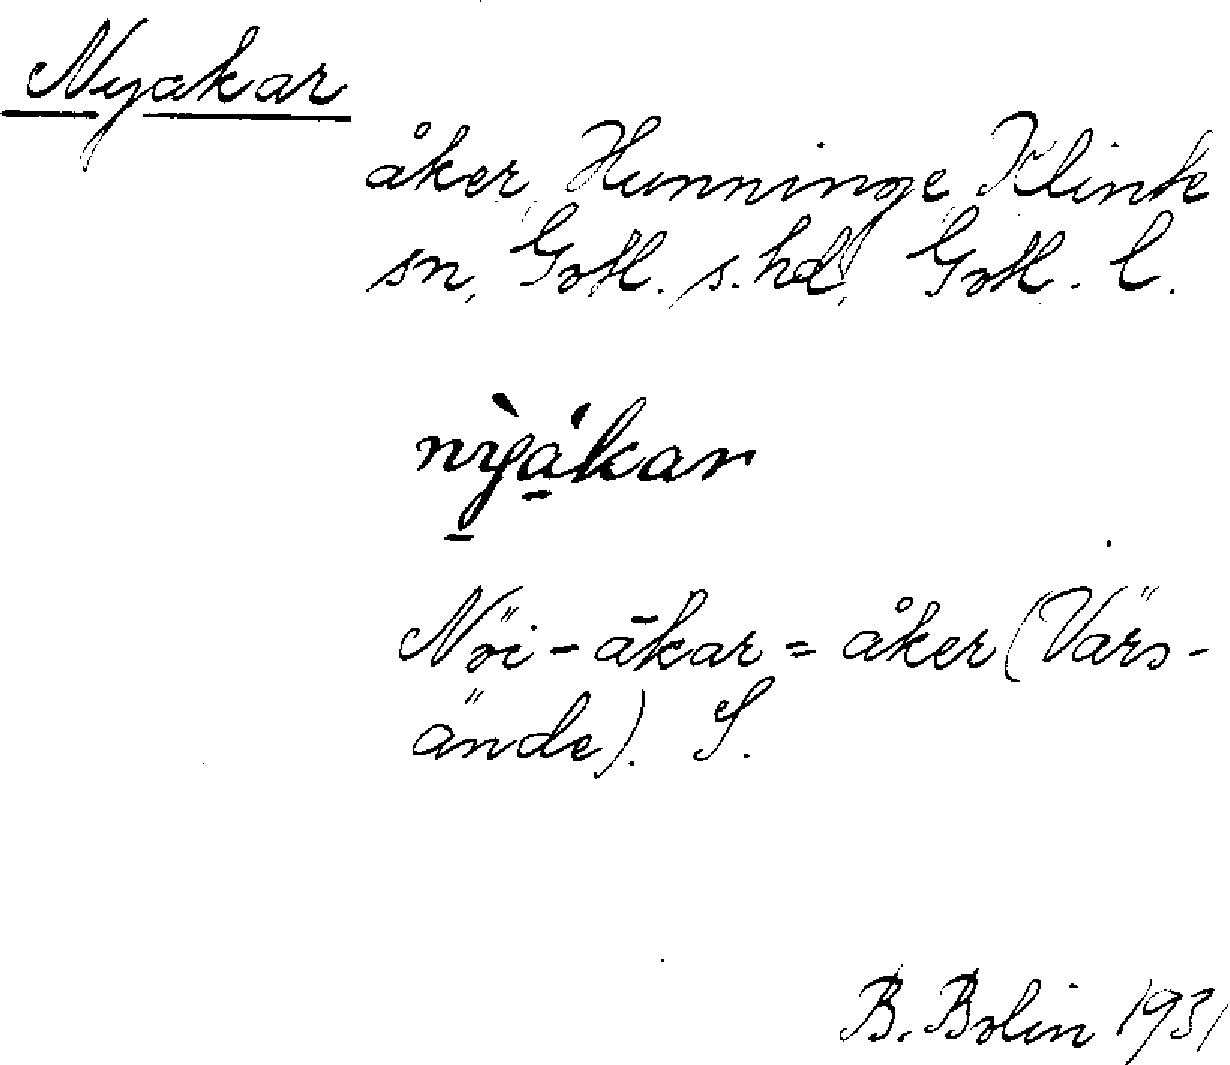 Nyakar
åker, Hunninge, Klinte
sn, Gotl. s. hd, Gotl. l.
nỳákar
Nöi-ākar = åker (Värs-
ände). S.
B. Bolin 1931